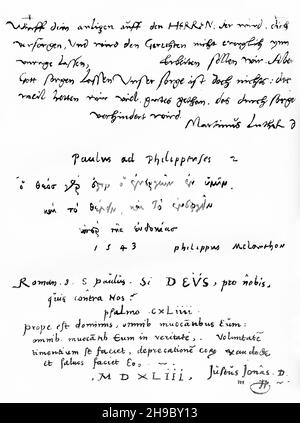 Wirff dein anligen auff den HERRN. der wird dich
versorgen, Und wird den Gerechten nicht ewiglich ynn
unruge lassen, Erbeiten sollen wir. Aber
Gott sorgen lassen Unser sorge ist doch nichts. das
weil hetten wir viel gutes gethan, das durch sorge
verhindert wird
Martinus Luther D
Paulus ad Philippenses 2
ὁ θεός γάρ ἐστιν ὁ ἐνεργῶν ἐν ὑμῖν
καὶ τὸ θέλειν, καὶ τὸ ἐνεργεῖν
ὑπὲρ τῆς εὐδοκίας
1543 philippus Melanthon
Roman. 8. S paulus. Si DEUS, pro nobis,
quis contra Nos?
psalmo CXLIIII.
prope est dominus, omnib invocantibus Eum:
omnib. invocantib Eum in veritate. Voluntatē
timentium se faciet, deprecationē eorū exaudiet
et salvos faciet Eos.
M D XLIII, Justus Jonas. D.
alamy
Image ID: 2H9BY13
www.alamy.com